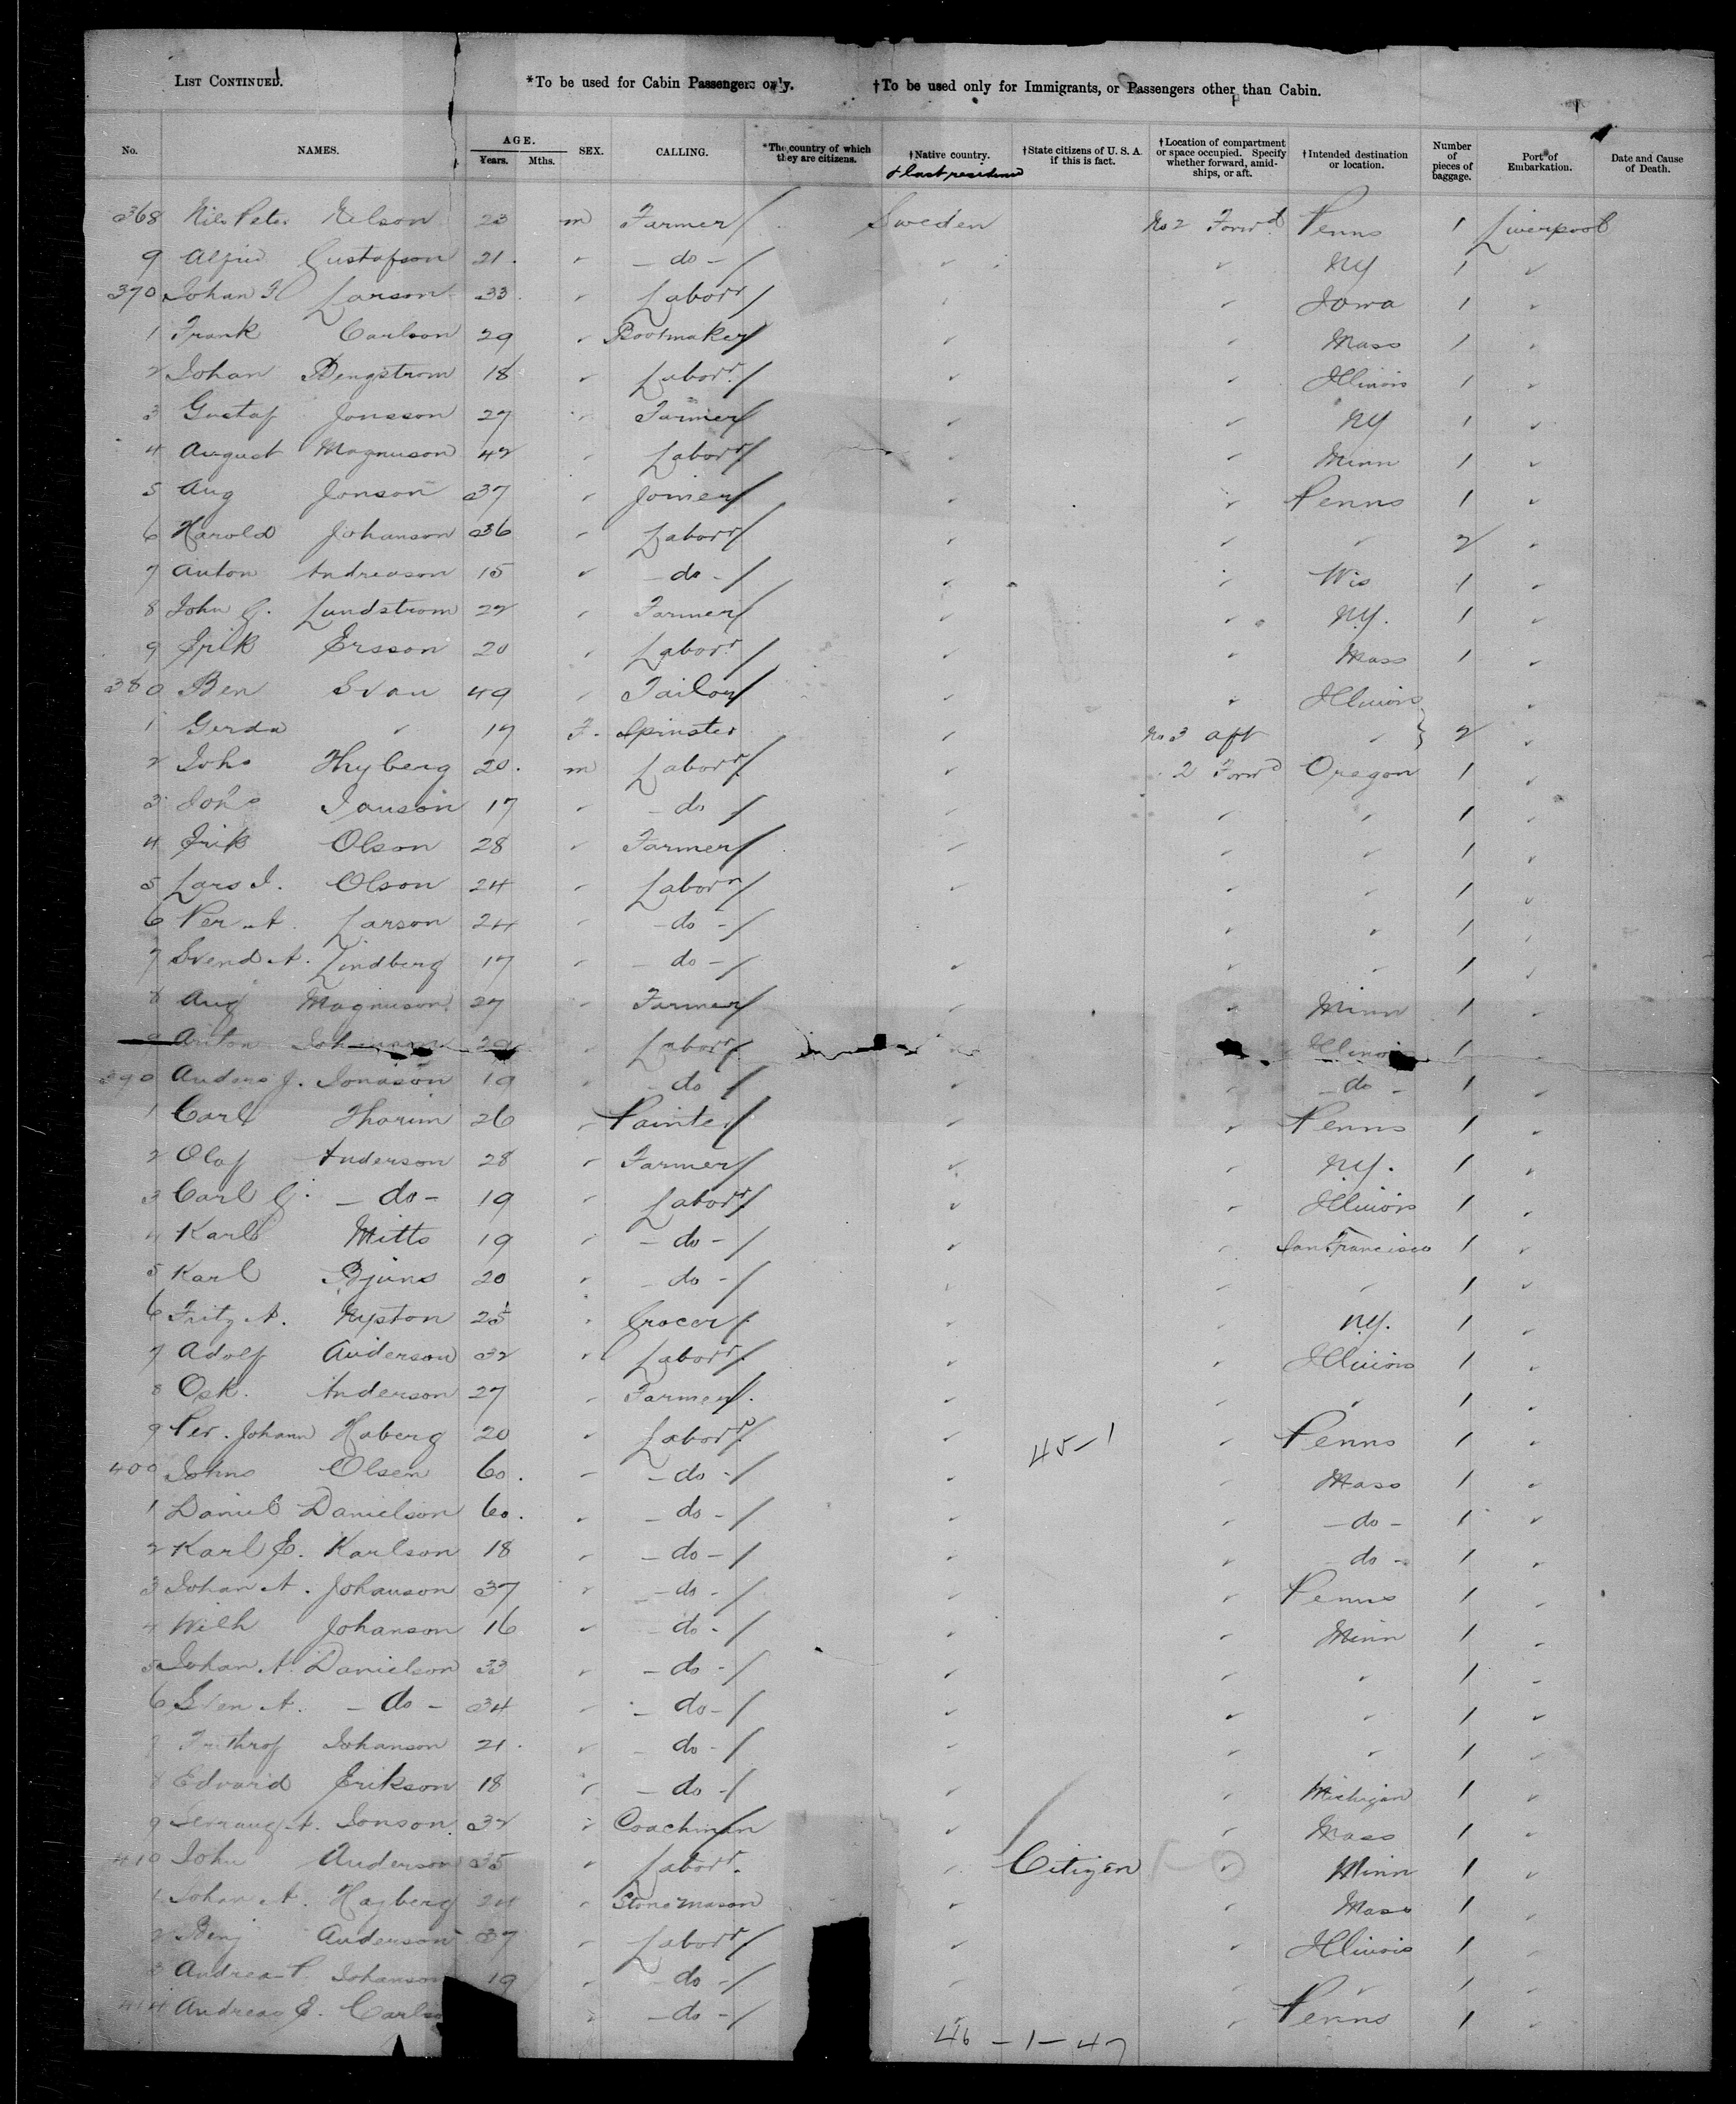 LIST CONTINUED. *To be used for Cabin Passengers only. †To be used only for Immigrants, or Passengers other than Cabin.
No. NAMES. AGE. Years. Mths. SEX. CALLING. *The country of which they are citizens. †Native country. & last residence †State citizens of U. S. A. if this is fact. †Location of compartment or space occupied. Specify whether forward, amidships, or aft. †Intended destination or location. Number of pieces of baggage. Port of Embarkation. Date and Cause of Death.
368 Nils Peter Nelson 23 m Farmer / Sweden No 2 Forwd Penns 1 Liverpool
9 Alfrid Gustafson 21. - do - / NY 1
370 Johan Larson 33 Laborr / Iowa 1
1 Frank Carlson 29 Bootmaker / Mass 1
2 Johan Bengstrom 18 Laborr / Illinois 1
3 Gustaf Jonsson 27 Farmer / NY 1
4 August Magnuson 42 Laborr / Minn 1
5 Aug Jonson 37 Joiner / Penns 1
6 Harold Johanson 36 Laborr / 2
7 Anton Andreason 15 - do - / Wis 1
8 John G. Lundstrom 22 Farmer / NY. 1
9 Erik Ersson 20 Laborr / Mass 1
380 Ben Svan 49 Tailor / Illinois
1 Gerda 17 F. Spinster No 3 aft 2
2 Johs Thyberg 20. m Laborr / 2 Forwd Oregon 1
3 Johs Janson 17 - do / 1
4 Erik Olson 28 Farmer / 1
5 Lars J. Olson 24 Laborr / 1
6 Per A. Larson 24 - do - / 1
7 Svend A. Lindberg 17 - do - / 1
8 Aug Magnuson 27 Farmer / Minn 1
9 Anton Laborr / Illinois 1
390 Anders J. Jonason 19 - do / - do - 1
1 Carl Thorim 26 Painter / Penns 1
2 Olaf Anderson 28 Farmer / NY. 1
3 Carl G. - do - 19 Laborr / Illinois 1
4 Karl Mitts 19 - do - / San Francisco 1
5 Karl Bjuns 20 - do - / 1
6 Fritz A. Nyston 25 Grocer / NY. 1
7 Adolf Anderson 32 Laborr / Illinois 1
8 Osk. Anderson 27 Farmer / 1
9 Per. Johann Haberg 20 Laborr / 45-1 Penns 1
400 Johns Olsen 60. - do - / Mass 1
1 Daniel Danielson 60. - do - / - do - 1
2 Karl E. Karlson 18 - do - / do - 1
3 Johan A. Johanson 37 - do - / Penns 1
4 Wilh Johanson 16 - do - / Minn 1
5 Johan A. Danielson 33 - do - / 1
6 Sven A. - do - 34 - do - / 1
7 Frithrof Johanson 21. - do - / 1
8 Edvard Erikson 18 - do - / Michigan 1
9 A. Jonson 32 Coachman / Mass 1
410 John Anderson 35 Laborr. Citizen Minn 1
1 Johan A. Hagberg 24 Stone Mason Mass 1
2 Benj Anderson 37 Laborr / Illinois 1
3 Andrea P. Johanson 19 - do - / 1
414 Andreas E. - do - / Penns 1
46 - 1 - 47